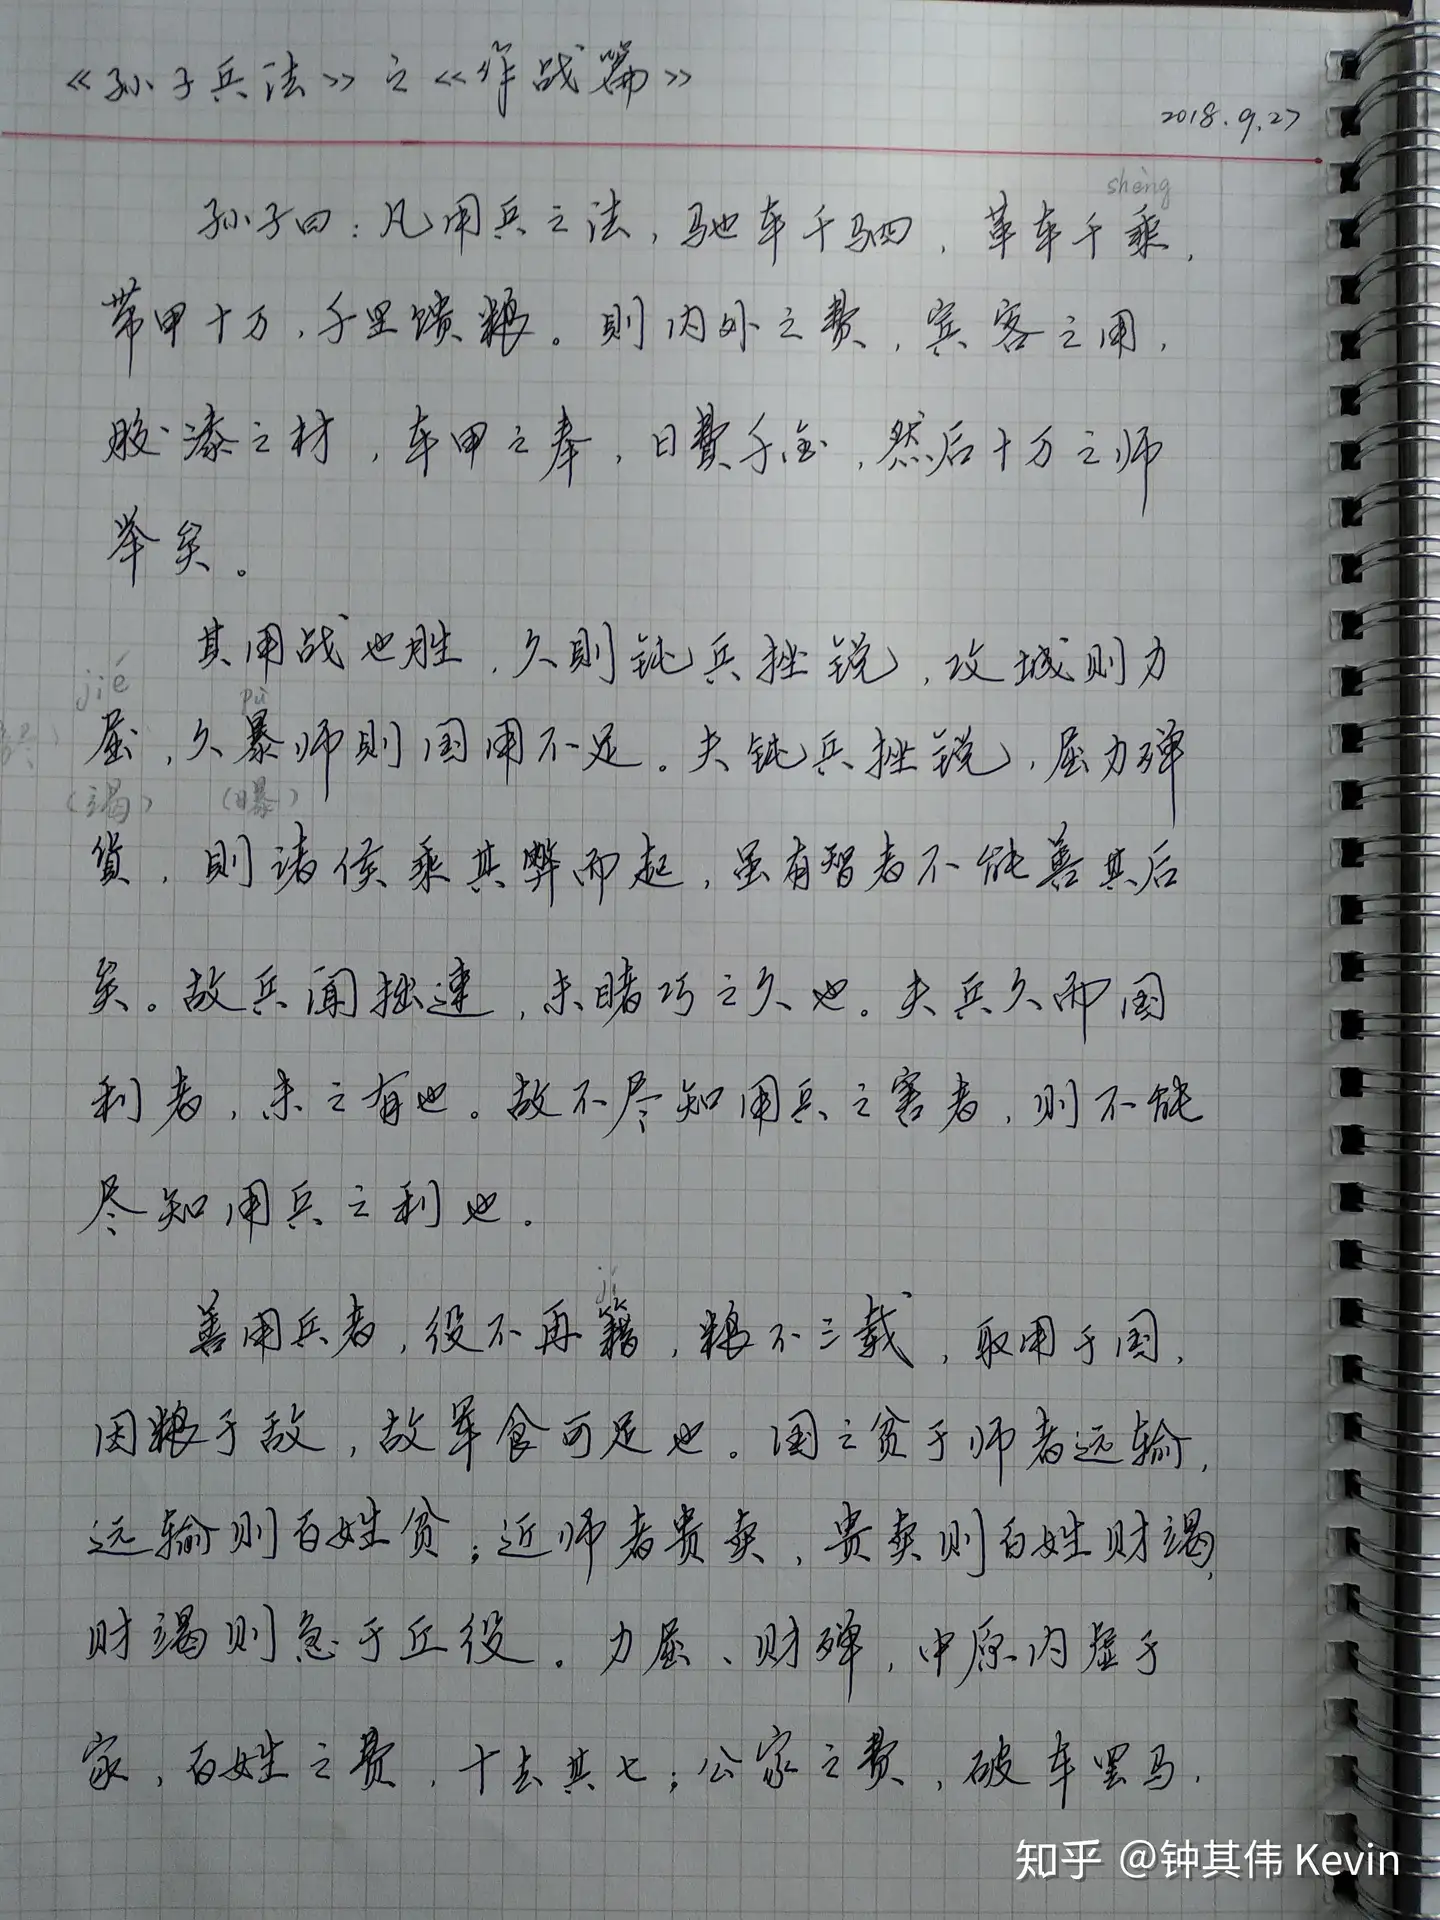 《孙子兵法》之《作战篇》
2018.9.27
shèng
孙子曰：凡用兵之法，驰车千驷，革车千乘，
带甲十万，千里馈粮。则内外之费，宾客之用，
胶漆之材，车甲之奉，日费千金，然后十万之师
举矣。
其用战也胜，久则钝兵挫锐，攻城则力
jié pù
屈，久暴师则国用不足。夫钝兵挫锐，屈力殚
（竭） （曝）
货，则诸侯乘其弊而起，虽有智者不能善其后
矣。故兵闻拙速，未睹巧之久也。夫兵久而国
利者，未之有也。故不尽知用兵之害者，则不能
尽知用兵之利也。
jí
善用兵者，役不再籍，粮不三载，取用于国，
因粮于敌，故军食可足也。国之贫于师者远输，
远输则百姓贫；近师者贵卖，贵卖则百姓财竭，
财竭则急于丘役。力屈、财殚，中原内虚于
家，百姓之费，十去其七；公家之费，破车罢马，
知乎 @钟其伟 Kevin